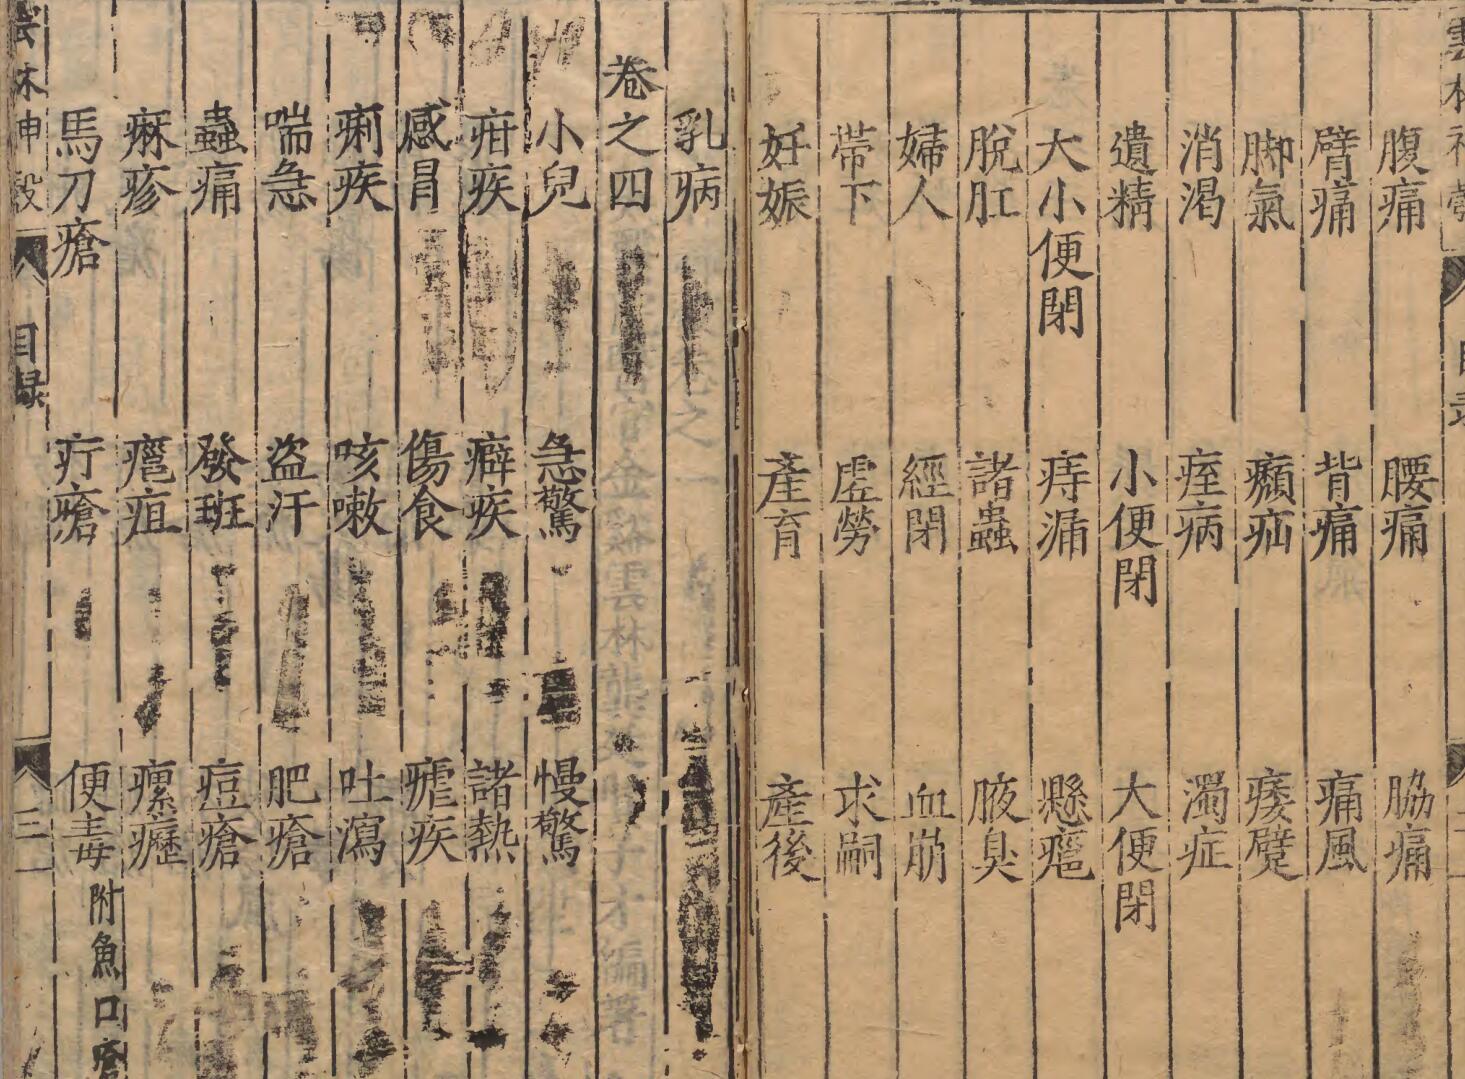 腹痛 腰痛 脇痛
臂痛 背痛 痛風
脚氣 㿗疝 痿躄
消渴 痓病 濁症
遺精 小便閉 大便閉
大小便閉 痔漏 懸癰
脫肛 諸蟲 腋臭
婦人 經閉 血崩
帶下 虛勞 求嗣
妊娠 產育 產後
乳病
卷之四
小兒 急驚 慢驚
疳疾 癖疾 諸熱
感冒 傷食 瘧疾
痢疾 咳嗽 吐瀉
喘急 盜汗 肥瘡
蟲痛 發班 痘瘡
痳疹 癰疽 瘰癧
馬刀瘡 疔瘡 便毒附魚口瘡
雲林神彀 目録 三